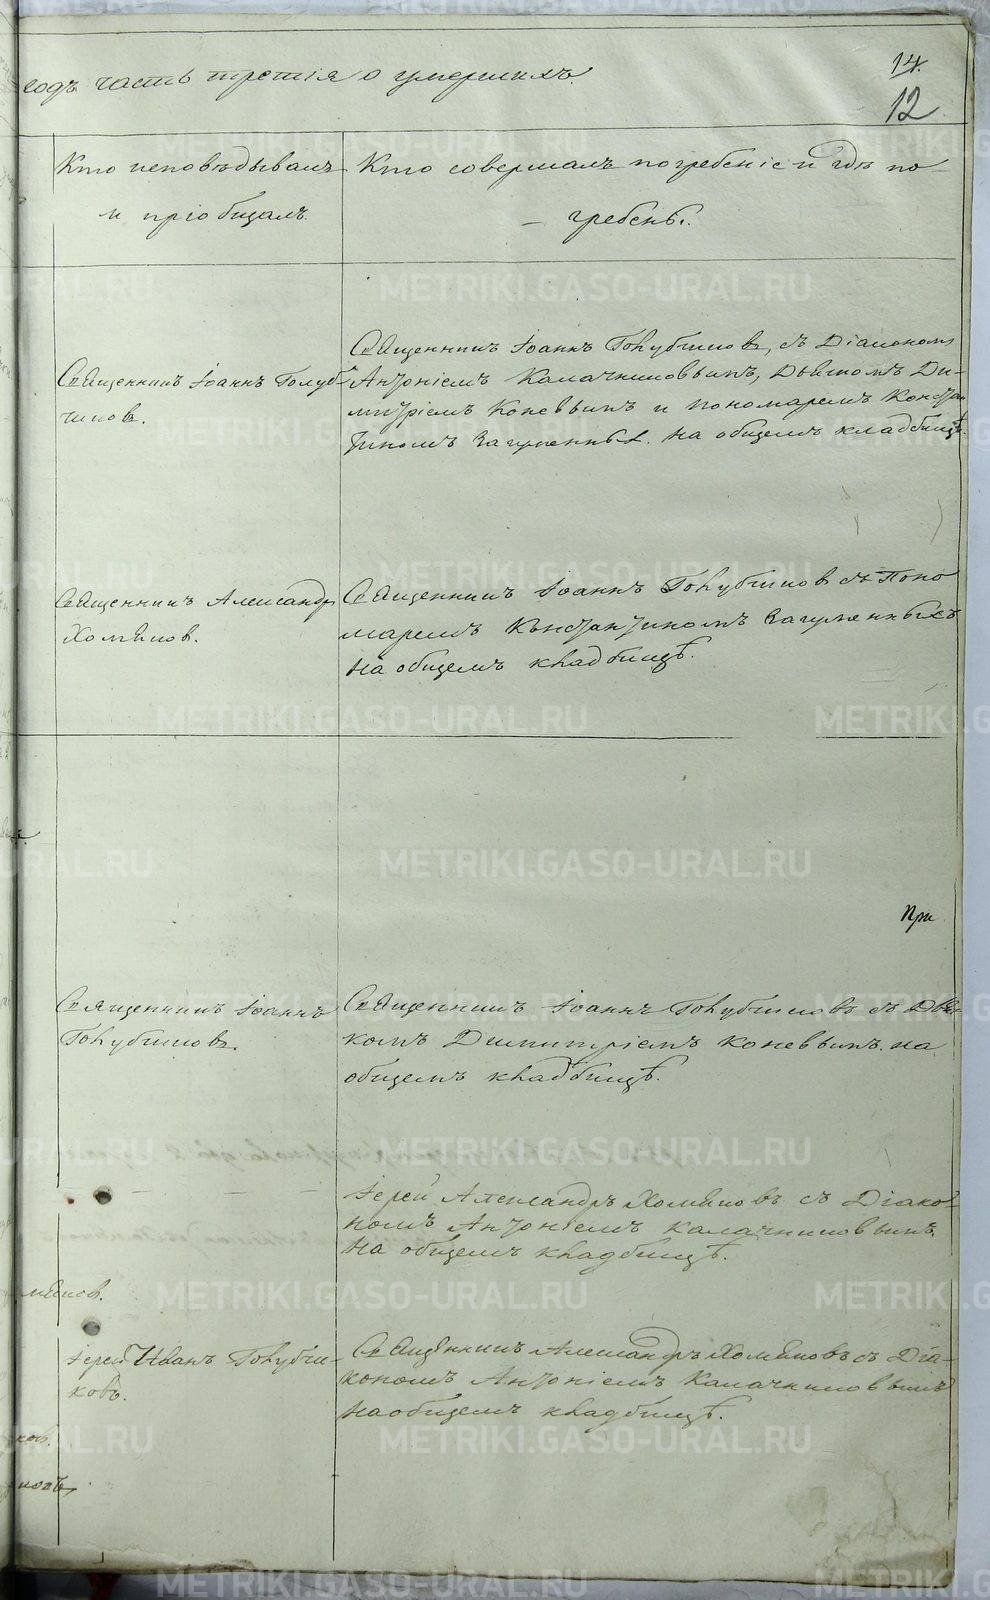 14.
12
годъ часть третія о умершихъ.
Кто исповѣдывалъ
и пріобщалъ.
Кто совершалъ погребеніе и гдѣ по-
гребены.
Священникъ Іоаннъ Голуб-
чиковъ.
Священникъ Іоаннъ Голубчиковъ, съ Діакономъ
Антоніемъ Калачниковымъ, Дьячкомъ Ди-
митріемъ Коневымъ и пономаремъ Констан
тиномъ Загуменныхъ. На общемъ кладбищѣ.
Священникъ Александръ
Хомяковъ.
Священникъ Іоаннъ Голубчиковъ съ Поно
маремъ Константиномъ Загуменныхъ
на общемъ кладбищѣ.
При
Священникъ Іоаннъ
Голубчиковъ.
Священникъ Іоаннъ Голубчиковъ съ Дьяч
комъ Димитріемъ Коневымъ. на
общемъ кладбищѣ.
Іерей Александръ Хомяковъ съ Діако-
номъ Антоніемъ Калачниковымъ.
На общемъ кладбищѣ.
мяков.
Іерей Иванъ Голубчи-
ковъ.
Священникъ Александръ Хомяковъ съ Діа-
кономъ Антоніемъ Калачниковымъ
На общемъ кладбищѣ.
ков.
METRIKI.GASO-URAL.RU